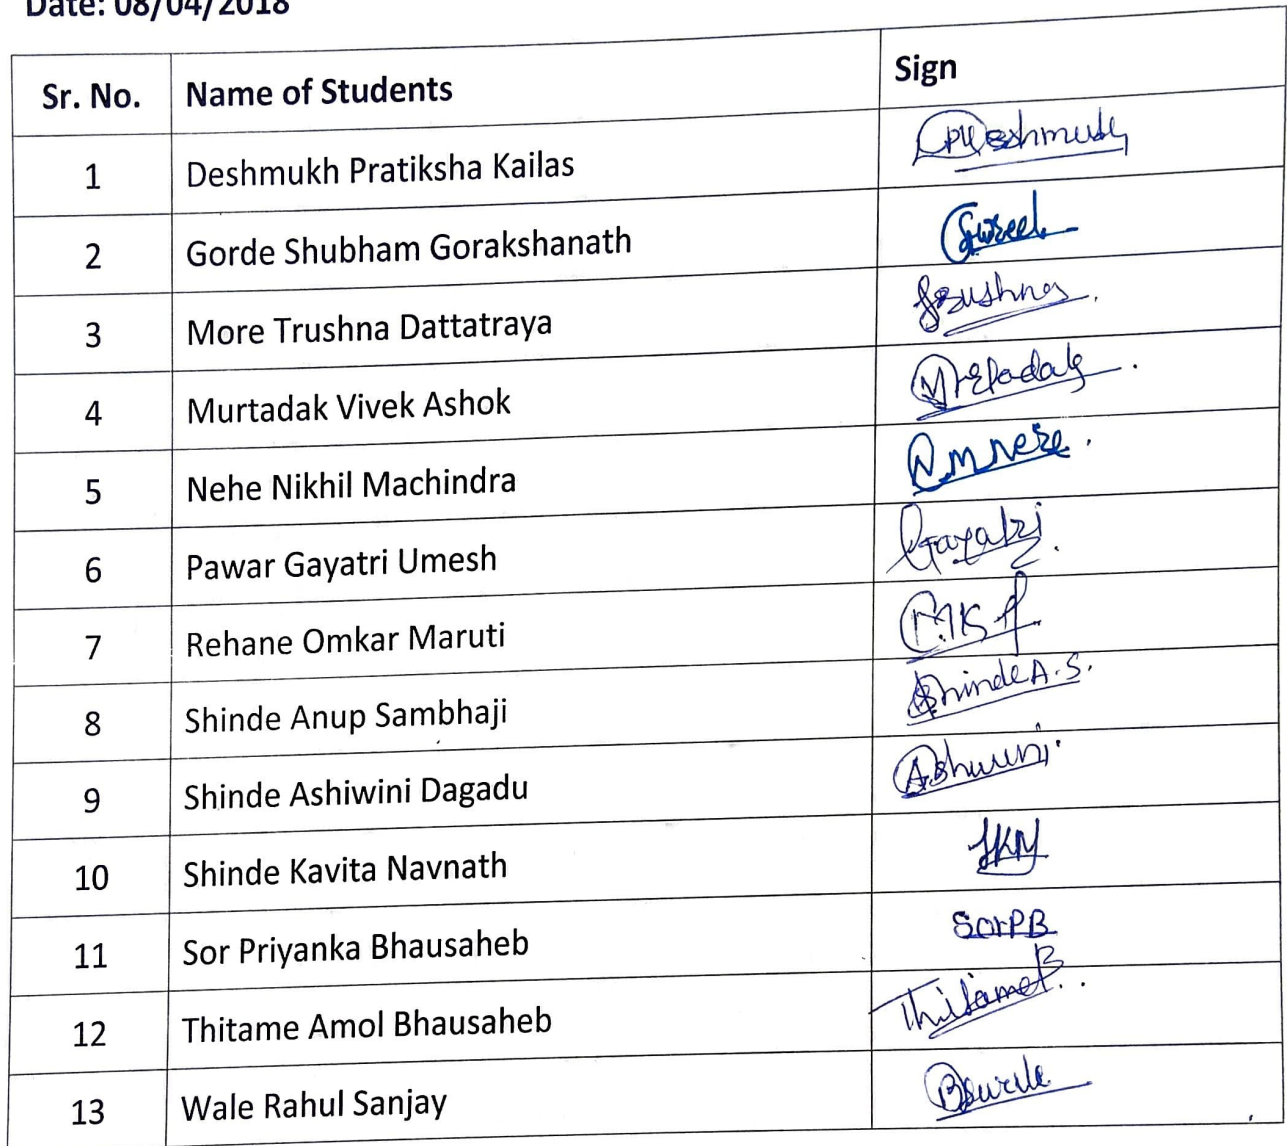 Date: 08/04/2018
Sr. No. Name of Students Sign
1 Deshmukh Pratiksha Kailas
2 Gorde Shubham Gorakshanath
3 More Trushna Dattatraya
4 Murtadak Vivek Ashok
5 Nehe Nikhil Machindra
6 Pawar Gayatri Umesh Gayatri
7 Rehane Omkar Maruti
8 Shinde Anup Sambhaji Shinde A.S.
9 Shinde Ashiwini Dagadu Ashwini
10 Shinde Kavita Navnath
11 Sor Priyanka Bhausaheb Sor PB
12 Thitame Amol Bhausaheb
13 Wale Rahul Sanjay